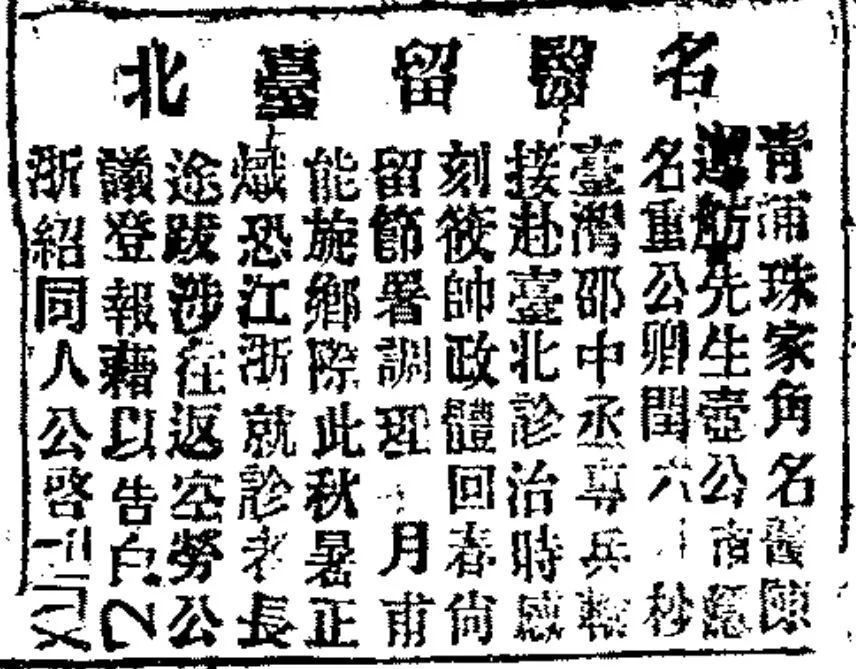 名醫留臺北
青浦珠家角名醫陳
蓮舫先生壺公市隱
名重公卿閏六月杪
臺灣邵中丞專兵輪
接赴臺北診治時感
刻筱帥政體回春尚
留節署調理 月甫
能旋鄉際此秋暑正
熾恐江浙就診者長
途跋涉往返空勞公
議登報藉以告白
浙紹同人公啓